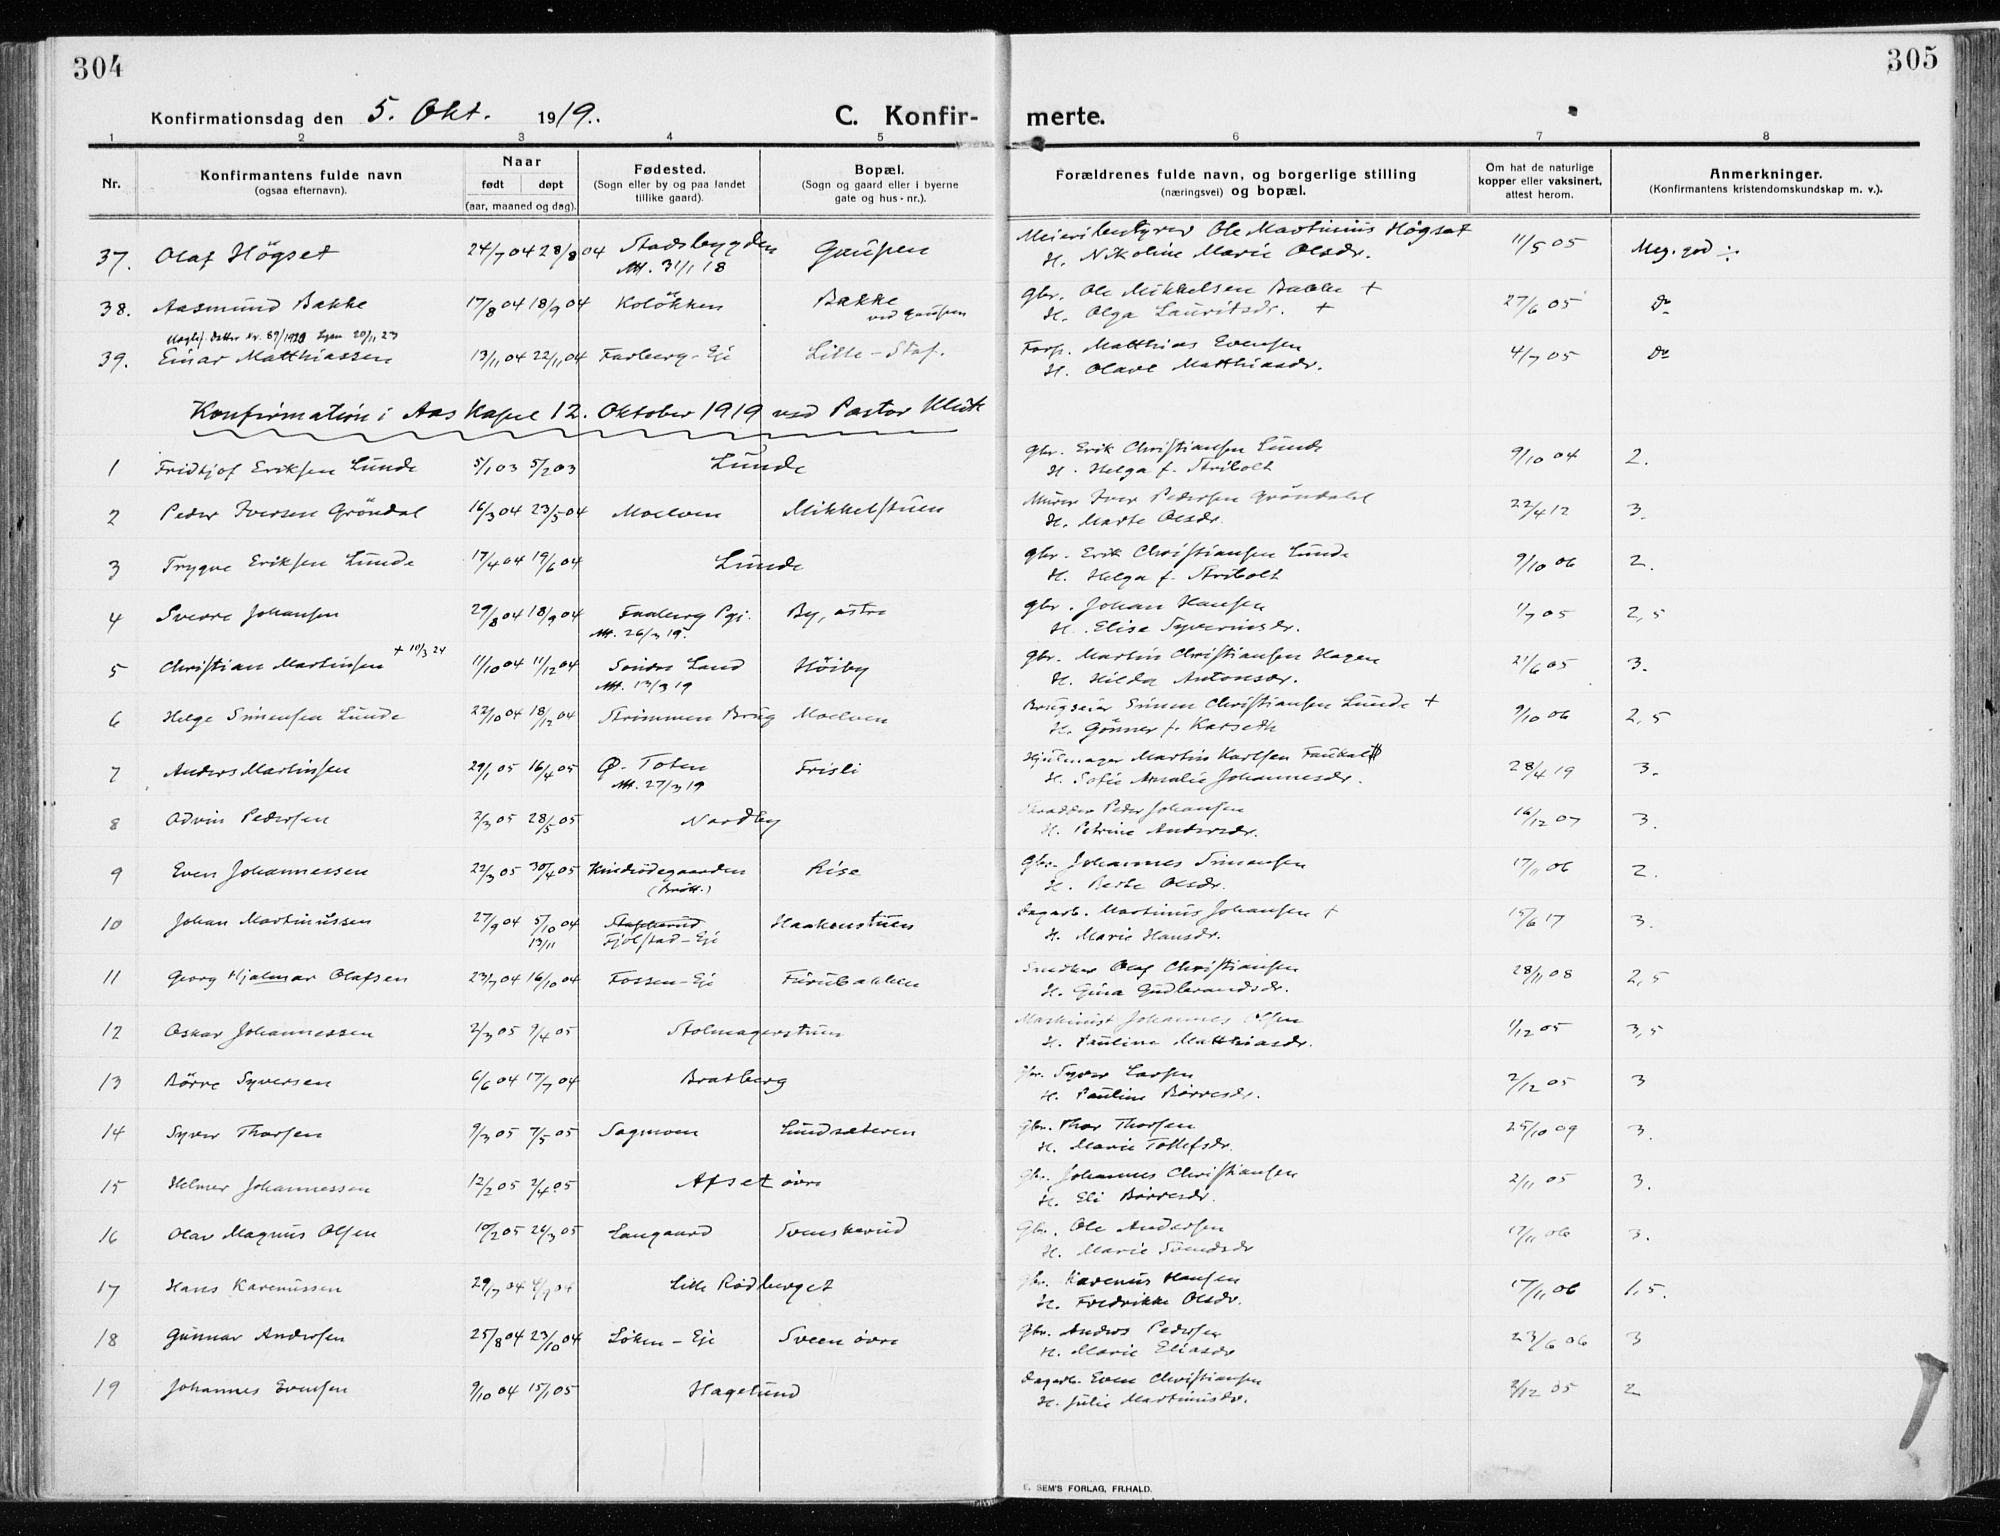 304
305
Konfirmationsdag den 5. Okt. 1919.
C. Konfir-merte.
1 2 3 4 5 6 7 8
Nr.
Konfirmantens fulde navn
(ogsaa efternavn).
Naar
født døpt
(aar, maaned og dag).
Fødested.
(Sogn eller by og paa landet
tillike gaard).
Bopæl.
(Sogn og gaard eller i byerne
gate og hus-nr.).
Forældrenes fulde navn, og borgerlige stilling
(næringsvei) og bopæl.
Om hat de naturlige
kopper eller vaksinert,
attest herom.
Anmerkninger.
(Konfirmantens kristendomskundskap m. v.).
37. Olaf Högset 24/7 04 28/8 04 Stadsbygden Gaupen Meieribestyrer Ole Martinius Högset 11/5 05 Meg. god ÷
Att. 31/1 18 H. Nikoline Marie Olsdr.
38. Aasmund Bakke 17/8 04 18/9 04 Kolökken Bakke Gbr. Ole Mikkelsen Bakke + 27/6 05 Do
ved Gaupen H. Olga Lauritsdr. +
Nr. 89/1920 20/11 23
39. Einar Matthiassen 13/11 04 22/11 04 Farberg-Eje Lille-Staf. Forp. Matthias Evensen 4/7 05 Do
H. Olave Matthiasdr.
Konfirmation i Aas Kapel 12. Oktober 1919 ved Pastor Klük
1 Fridtjof Eriksen Lunde 5/1 03 5/2 03 Lunde Gbr. Erik Christiansen Lunde 9/10 04 2.
H. Helga f. Stribolt
2 Peder Iversen Gröndal 16/3 04 23/5 04 Moelven Mikkelstuen Murer Iver Pedersen Gröndahl 22/4 12 3.
H. Marte Olsdr.
3 Trygve Eriksen Lunde 17/4 04 19/6 04 Lunde Gbr. Erik Christiansen Lunde 9/10 06 2.
H. Helga f. Stribolt
4 Sverre Johansen 29/8 04 18/9 04 Faaberg Pgj. By, østre Gbr. Johan Hansen 1/7 05 2,5
Att. 26/3 19. H. Elise Syverinsdr.
5 Christian Martinsen + 10/3 24 11/10 04 11/12 04 Söndre Land Höiby Gbr. Martin Christiansen Hagen 21/6 05 3.
Att. 13/3 19 H. Hilda Antonsdr.
6 Helge Simensen Lunde 22/10 04 18/12 04 Strömmen Brug Moelven Brugseier Simen Christiansen Lunde + 9/10 06 2,5
H. Gönner f. Karseth
7 Anders Martinsen 29/1 05 16/4 05 Ø. Toten Frisli Hjulmager Martin Karlsen 28/4 19 3.
Att. 27/3 19 H. Sofie Amalie Johannesdr.
8 Odvin Pedersen 2/3 05 28/5 05 Nordby Skrædder Peder Johansen 16/12 07 3.
H. Petrine Andersdr.
9 Even Johannessen 22/3 05 30/4 05 Kindrödegaarden Rise Gbr. Johannes Simensen 17/11 06 2.
(Brött.) H. Berte Olsdr.
10 Johan Martinussen 27/9 04 5/10 04 Haakenstuen Dagarb. Martinus Johansen + 15/6 17 3.
13/11 Fjölstad-Eje H. Marie Hansdr.
11 Georg Hjalmar Olafsen 23/7 04 16/10 04 Fossen-Eje Furubakken Snedker Olaf Christiansen 28/11 08 2,5
H. Gina Gudbrandsdr.
12 Oskar Johannessen 2/3 05 2/4 05 Stolmagerstuen Maskinist Johannes Olsen 1/12 05 3,5
H. Pauline Matthiasdr.
13 Börre Syversen 6/6 04 17/7 04 Bratberg Gbr. Syver Larsen 2/12 05 3
H. Pauline Börresdr.
14 Syver Thorsen 9/3 05 7/5 05 Sagmoen Lundsæteren Gbr. Thor Thorsen 25/10 09 3.
H. Marie Tollefsdr.
15 Helmer Johannessen 12/2 05 2/4 05 Afset övre Gbr. Johannes Christiansen 2/11 05 3.
H. Eli Börresdr.
16 Olav Magnus Olsen 10/2 05 26/3 05 Langaard Svenskerud Gbr. Ole Andersen 17/11 06 3.
H. Marie Svendsdr
17 Hans Karenussen 29/7 04 4/9 04 Lille Rödberget Gbr. Karenus Hansen 17/11 06 1,5.
H. Fredrikke Olsdr.
18 Gunnar Andersen 25/8 04 23/10 04 Löken-Eje Sveen övre Gbr. Anders Pedersen 23/6 06 3
H. Marie Eliasdr
19 Johannes Evensen 9/10 04 15/1 05 Hagelund Dagarb. Even Christiansen 2/12 05 2
H. Julie Martinusdr.
E. SEM'S FORLAG, FR.HALD.